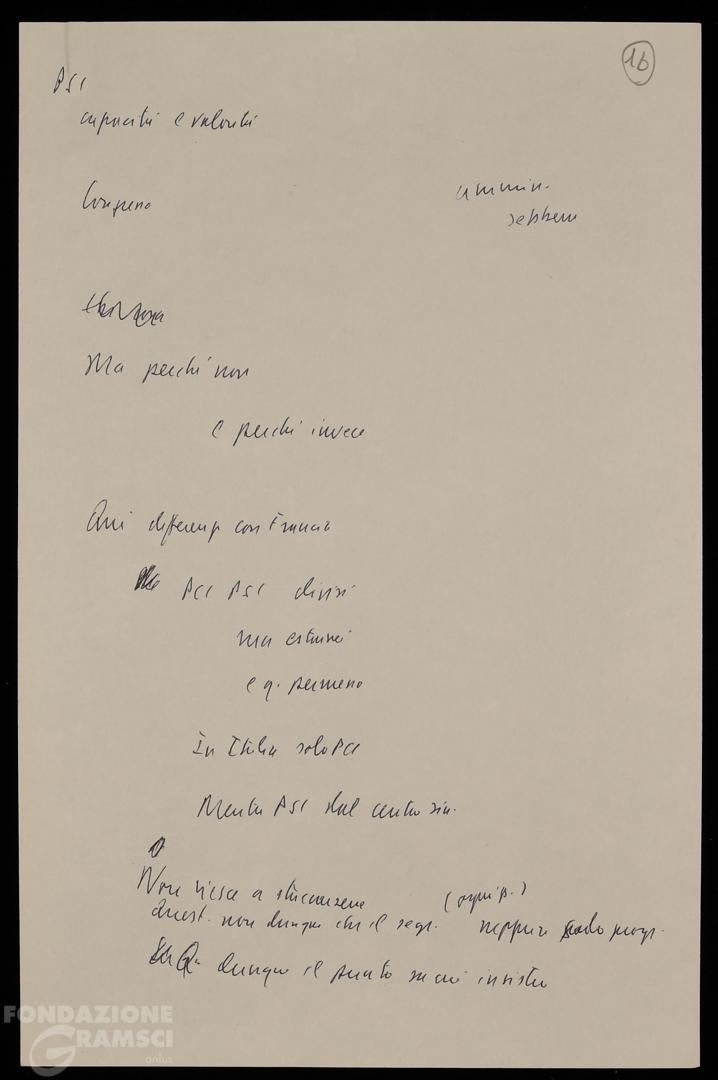 16
PSI
capacità e volontà
Congreno
ammin.
sebbene
Ma perché non
e perché invece
Qui differenz con Francia
PCI PSI divisi
ma estranei
e q. permeno
In Italia solo PCI
Mentre PSI dal centro sin.
Non riesce a staccarsene
(equip.)
Quest. non dunque che il segr. neppure solo progr.
Qu dunque il punto su cui insistere
FONDAZIONE
GRAMSCI
onlus